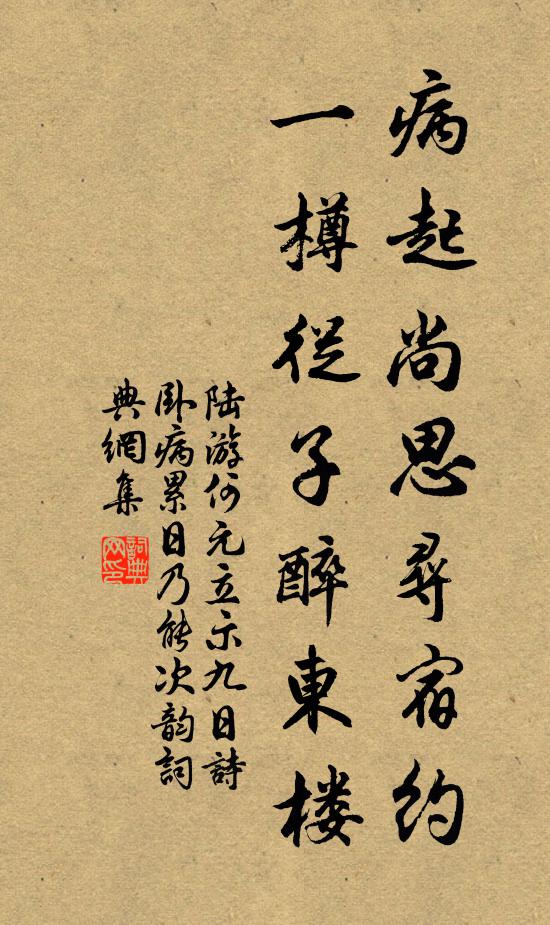 病起尚思尋宿約
一樽從子醉東楼
陆游何元立示九日詩
卧病累日乃能次韵詞
典網集
詞典
网印